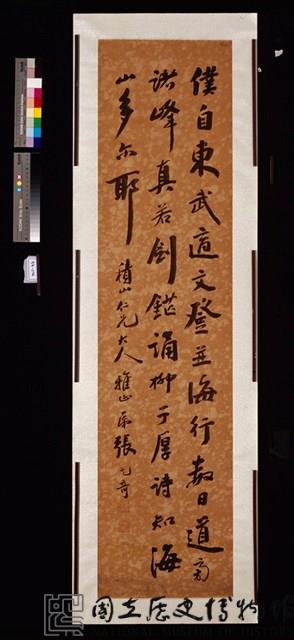 僕自東武適文登並海行數日道旁
諸峰真若劍鋩誦柳子厚詩知海
山多爾耶
積山仁兄大人雅正 張元奇
國立歷史博物館